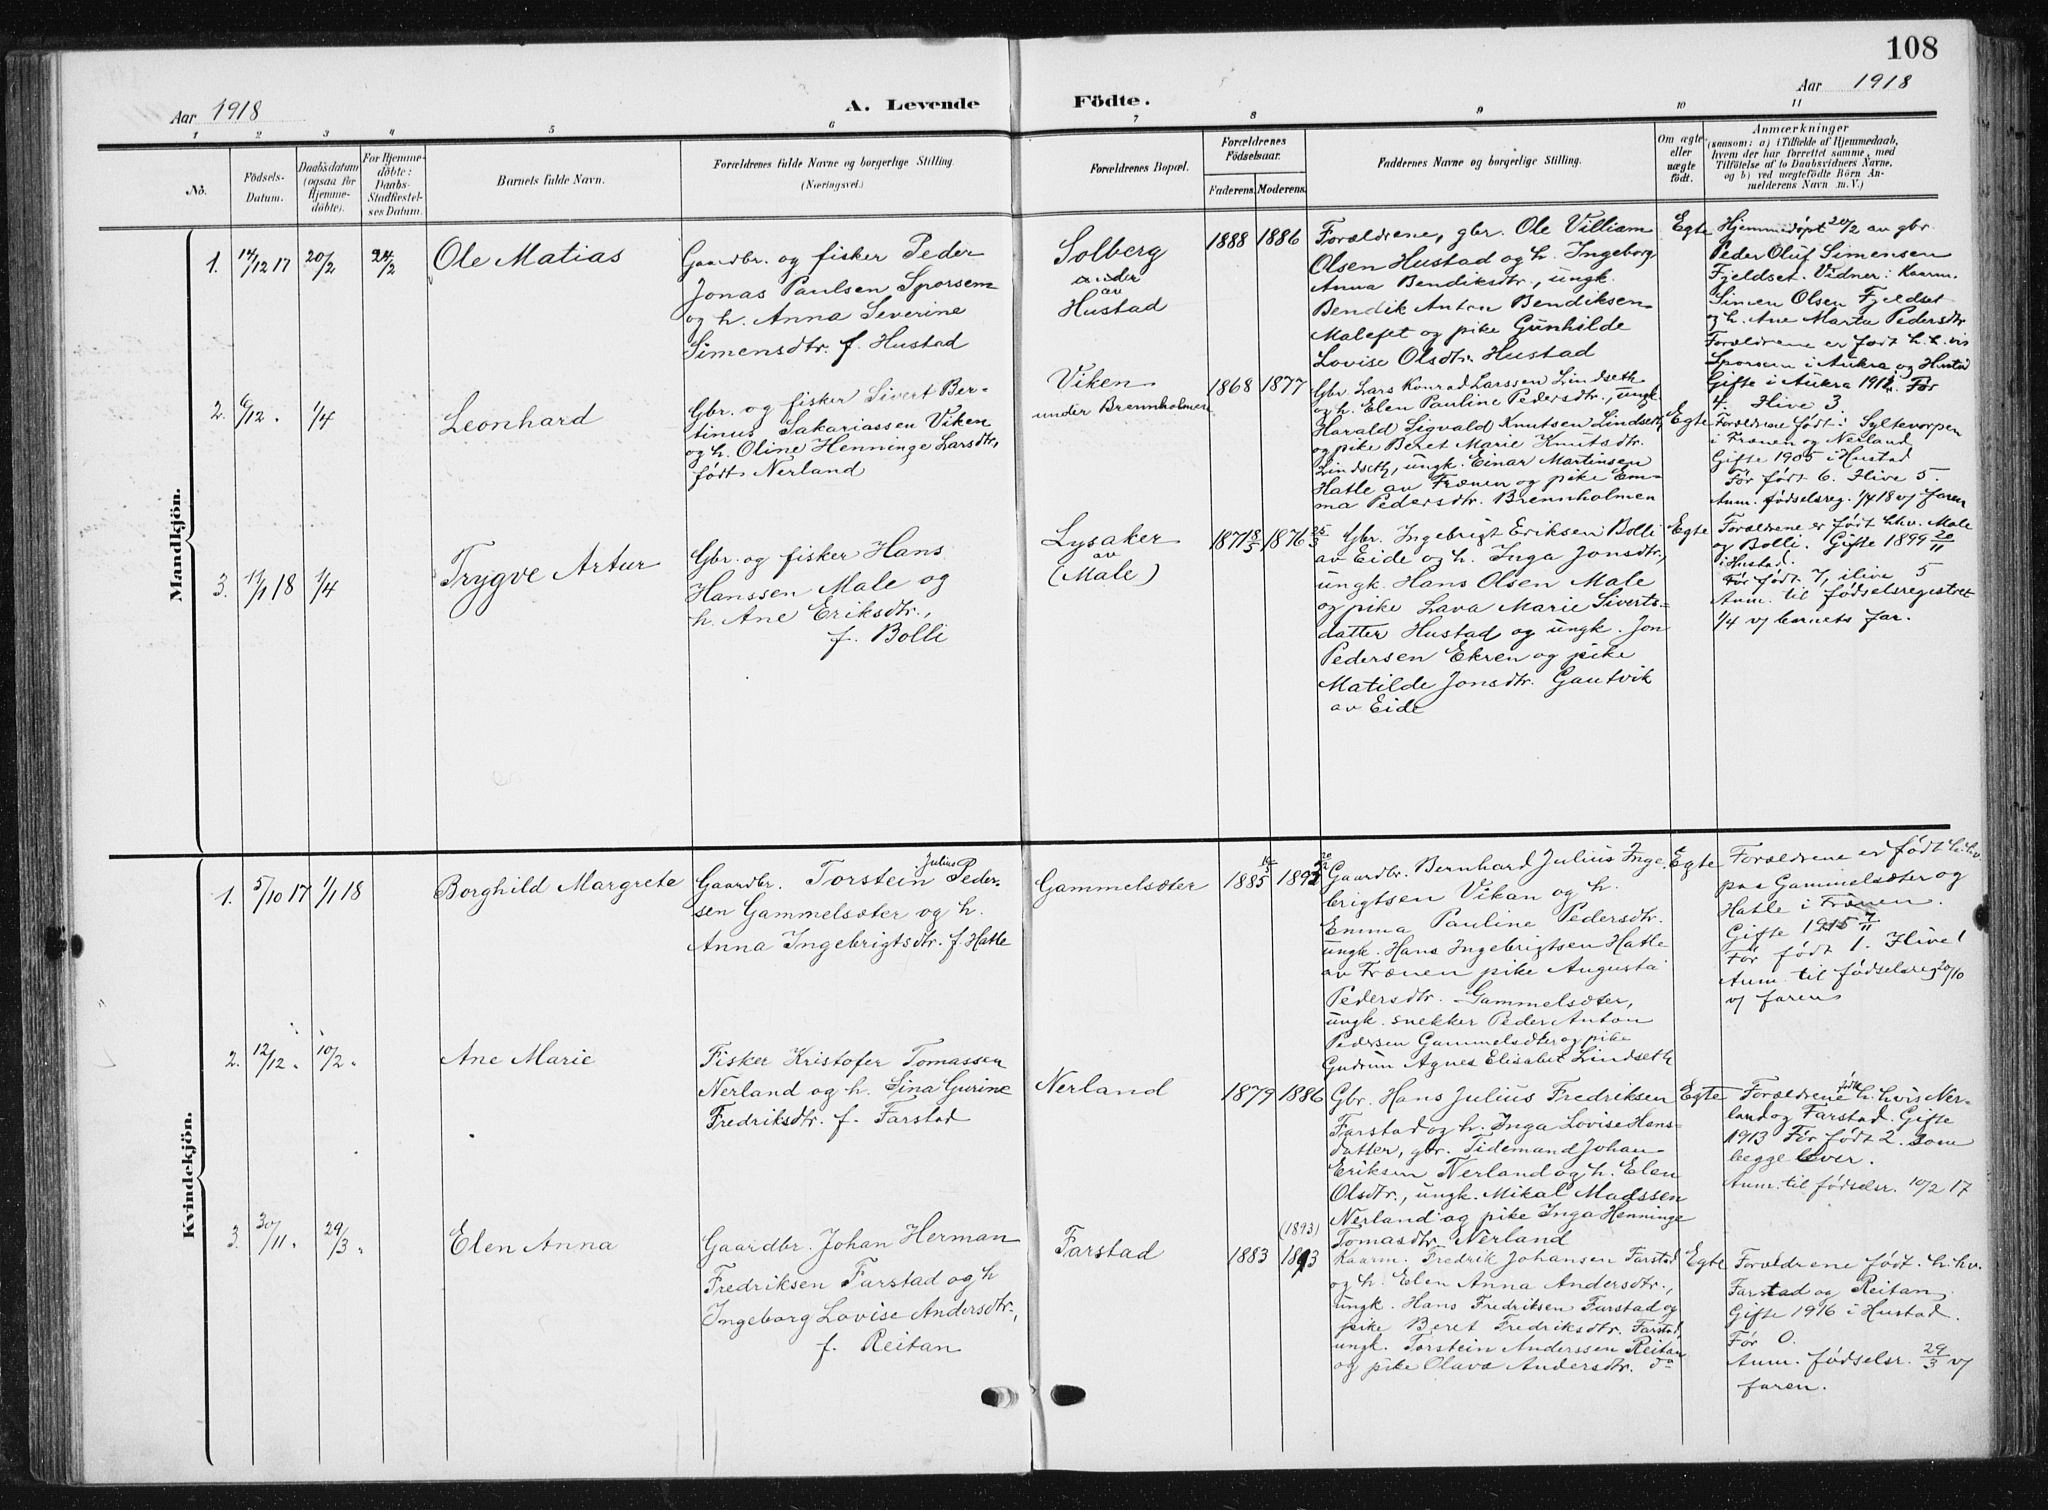 108
Aar 1918
A. Levende Födte.
Aar 1918
1 2 3 4 5 6 7 8 9 10 11
No.
Födsels-
Datum.
Daabsdatum
(ogsaa for
Hjemme-
döbte).
For Hjemme-
döbte:
Daabs-
Stadfæstel-
ses Datum.
Barnets fulde Navn.
Forældrenes fulde Navne og borgerlige Stilling.
(Næringsvei.)
Forældrenes Bopæl.
Forældrenes
Födselsaar.
Faderens. Moderens.
Faddernes Navne og borgerlige Stilling.
Om ægte
eller
uægte
födt.
Anmærkninger
(saasom: a) i Tilfælde af Hjemmedaab,
hvem der har forrettet samme, med
Tilföielse af to Daabsvidners Navne,
og b) ved uægtefödte Börn An-
melderens Navn m. V.)
Mandkjön.
1. 14/12 17 20/2 24/2
Ole Matias
Gaardbr. og fisker Peder
Jonas Paulsen Sporsem
og h. Anna Severine
Simensdtr. f. Hustad
Solberg
under
av
Hustad
1888 1886
Forældrene, gbr. Ole Villiam
Olsen Hustad og h. Ingeborg
Anna Bendiksdtr., ungk.
Bendik Anton Bendiksen
Malefet og pike Gunhilde
Lovise Olsdtr. Hustad
Egte
Hjemmedøpt 20/2 av gbr.
Peder Oluf Simensen
Fjeldset. Vidner: Kaarm.
Simen Olsen Fjeldset
og h. Ane Marta Pedersdtr
Forældrene er født h.h.vis
Sporsem i Aukra og Hustad
Gifte i Aukra 1912. Før
4. Ilive 3.
2. 6/12 " 1/4
Leonhard
Gbr. og fisker Sivert Ber-
tinus Sakariassen Viken
og h. Oline Henninge Larsdtr,
født Nerland
Viken
under Brennholmen
1868 1877
Gbr. Lars Konrad Larssen Lindseth
og h. Elen Pauline Pedersdtr., ungk
Harald Sigvald Knutsen Lindseth
og pike Beret Marie Knutsdtr.
Lindseth, ungk. Einar Martinsen
Hatle av Frænen og pike Em-
ma Pedersdtr. Brennholmen
Egte
Forældrene født: Syltevorpen
i Frænen og Nerland
Gifte 1905 i Hustad
Før født 6. Ilive 5.
Anm. fødselsreg. 1/4 18 v/ faren
3. 11/1 18 1/4
Trygve Artur
Gbr. og fisker Hans
Hanssen Male og
h. Ane Eriksdtr.,
f. Bolli
Lysaker
av
(Male)
1871 18/5 1876 25/3
Gbr. Ingebrigt Eriksen Bolli
av Eide og h. Inga Jonsdtr,
ungk. Hans Olsen Male
og pike Lava Marie Siverts-
datter Hustad og ungk. Jon
Pedersen Ekren og pike
Matilde Jonsdtr. Gautvik
av Eide
Egte
Forældrene er født hhv. Male
og Bolli. Gifte 1899 20/11
i Hustad.
Før født 7, ilive 5
Anm. til fødselsregistret
1/4 v/ barnets far.
Kvindekjön.
1. 5/10 17 1/1 18
Borghild Margrete
Julius
Gaardbr. Torstein Peder-
sen Gammelsæter og h.
Anna Ingebrigtsdtr. f. Hatle
Gammelsæter
1885
Gaardbr. Bernhard Julius Inge-
brigtsen Vikan og h.
Emma Pauline Pedersdtr.
ungk. Hans Ingebrigtsen Hatle
av Frænen pike Augusta
Pedersdtr. Gammelsæter,
ungk. snekker Peder Anton
Pedersen Gammelsæter og pike
Gudrun Agnes Elisabet Lindseth
Egte
Forældrene er født h.hv.
paa Gammelsæter og
Hatle i Frænen.
Gifte 1915 7/11
Før født 1. Ilive 1
Anm. til fødselsreg 20/10
v/ faren
2. 12/12 " 10/2 "
Ane Marie
Fisker Kristofer Tomassen
Nerland og h. Lina Gurine
Fredriksdtr. f. Farstad
Nerland
1879 1886
Gbr. Hans Julius Fredriksen
Farstad og h. Inga Lovise Hans-
datter, gbr. Tidemand Johan
Eriksen Nerland og h. Elen
Olsdtr., ungk. Mikal Madssen
Nerland og pike Inga Henninge
Tomasdtr. Nerland
Egte
født
Forældrene h.hvis Ner-
land og Farstad. Gifte
1913 Før født 2. som
begge lever.
Anm. til fødselsr. 10/2 17
3. 30/11 " 29/3 "
Elen Anna
Gaardbr. Johan Herman
Fredriksen Farstad og h
Ingeborg Lovise Andersdtr.,
f. Reitan
Farstad
(1893)
1883 1893
Kaarm. Fredrik Johansen Farstad
og h. Elen Anna Andersdtr.,
ungk. Hans Fredriksen Farstad og
pike Beret Fredriksdtr. Farstad,
ungk. Torstein Anderssen Reitan
og pike Olava Andersdtr. do
Egte
Forældrene født. h.hv.
Farstad og Reitan
Gifte 1916 i Hustad.
Før 0.
Anm. fødselsr. 29/3 v/
faren.